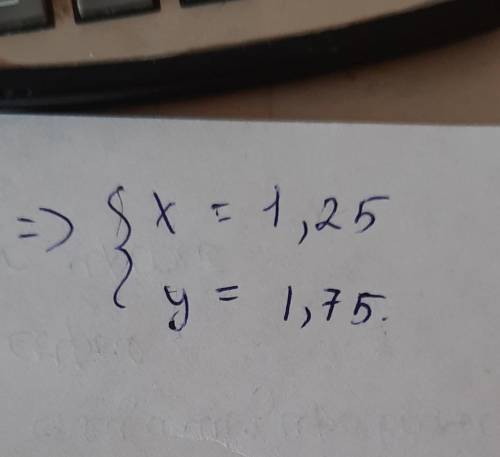 => { x = 1,25
y = 1,75.